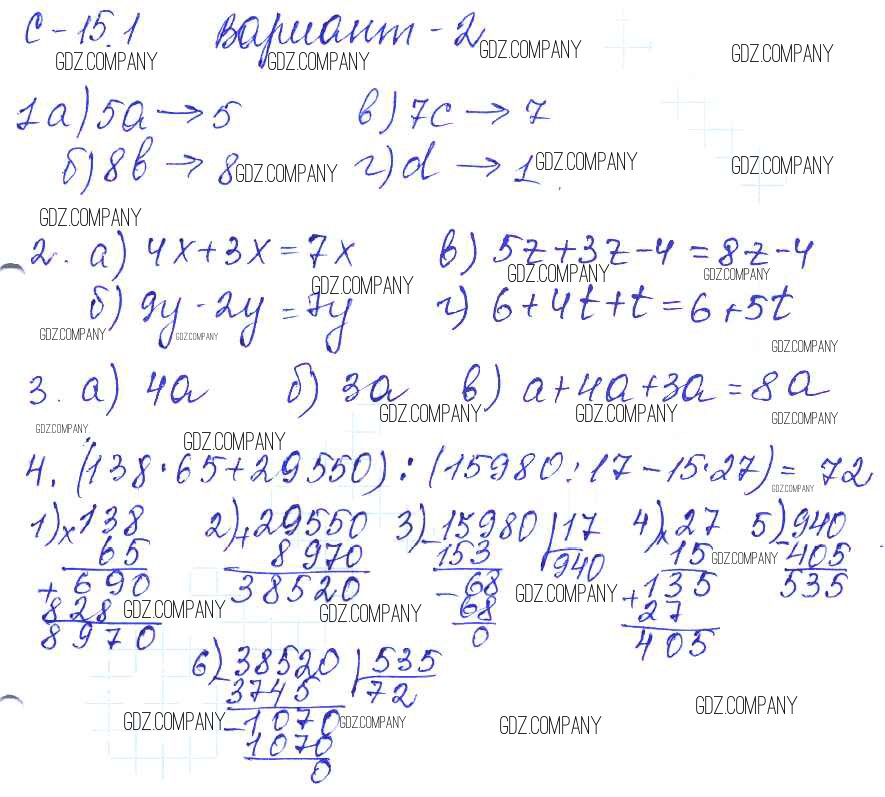 С-15.1 Вариант-2
GDZ.COMPANY GDZ.COMPANY GDZ.COMPANY GDZ.COMPANY
1 а) 5a → 5 в) 7c → 7
б) 8b → 8 г) d → 1
GDZ.COMPANY GDZ.COMPANY GDZ.COMPANY
GDZ.COMPANY
2. а) 4x+3x=7x в) 5z+3z-4=8z-4
GDZ.COMPANY GDZ.COMPANY GDZ.COMPANY
б) 9y-2y=7y г) 6+4t+t=6+5t
GDZ.COMPANY GDZ.COMPANY GDZ.COMPANY
3. а) 4a б) 3a в) a+4a+3a=8a
GDZ.COMPANY GDZ.COMPANY GDZ.COMPANY GDZ.COMPANY
GDZ.COMPANY
4. (138·65+29550):(15980:17-15·27)=72
GDZ.COMPANY
1) ×138 2) +29550 3) -15980 |17 4) ×27 5) -940
65 8970 153 940 15 405
GDZ.COMPANY
+690 38520 -68 +135 535
GDZ.COMPANY
828 68 27
GDZ.COMPANY GDZ.COMPANY
8970 0 405
6) -38520 |535
3745 72
GDZ.COMPANY GDZ.COMPANY GDZ.COMPANY GDZ.COMPANY
-1070
1070
0